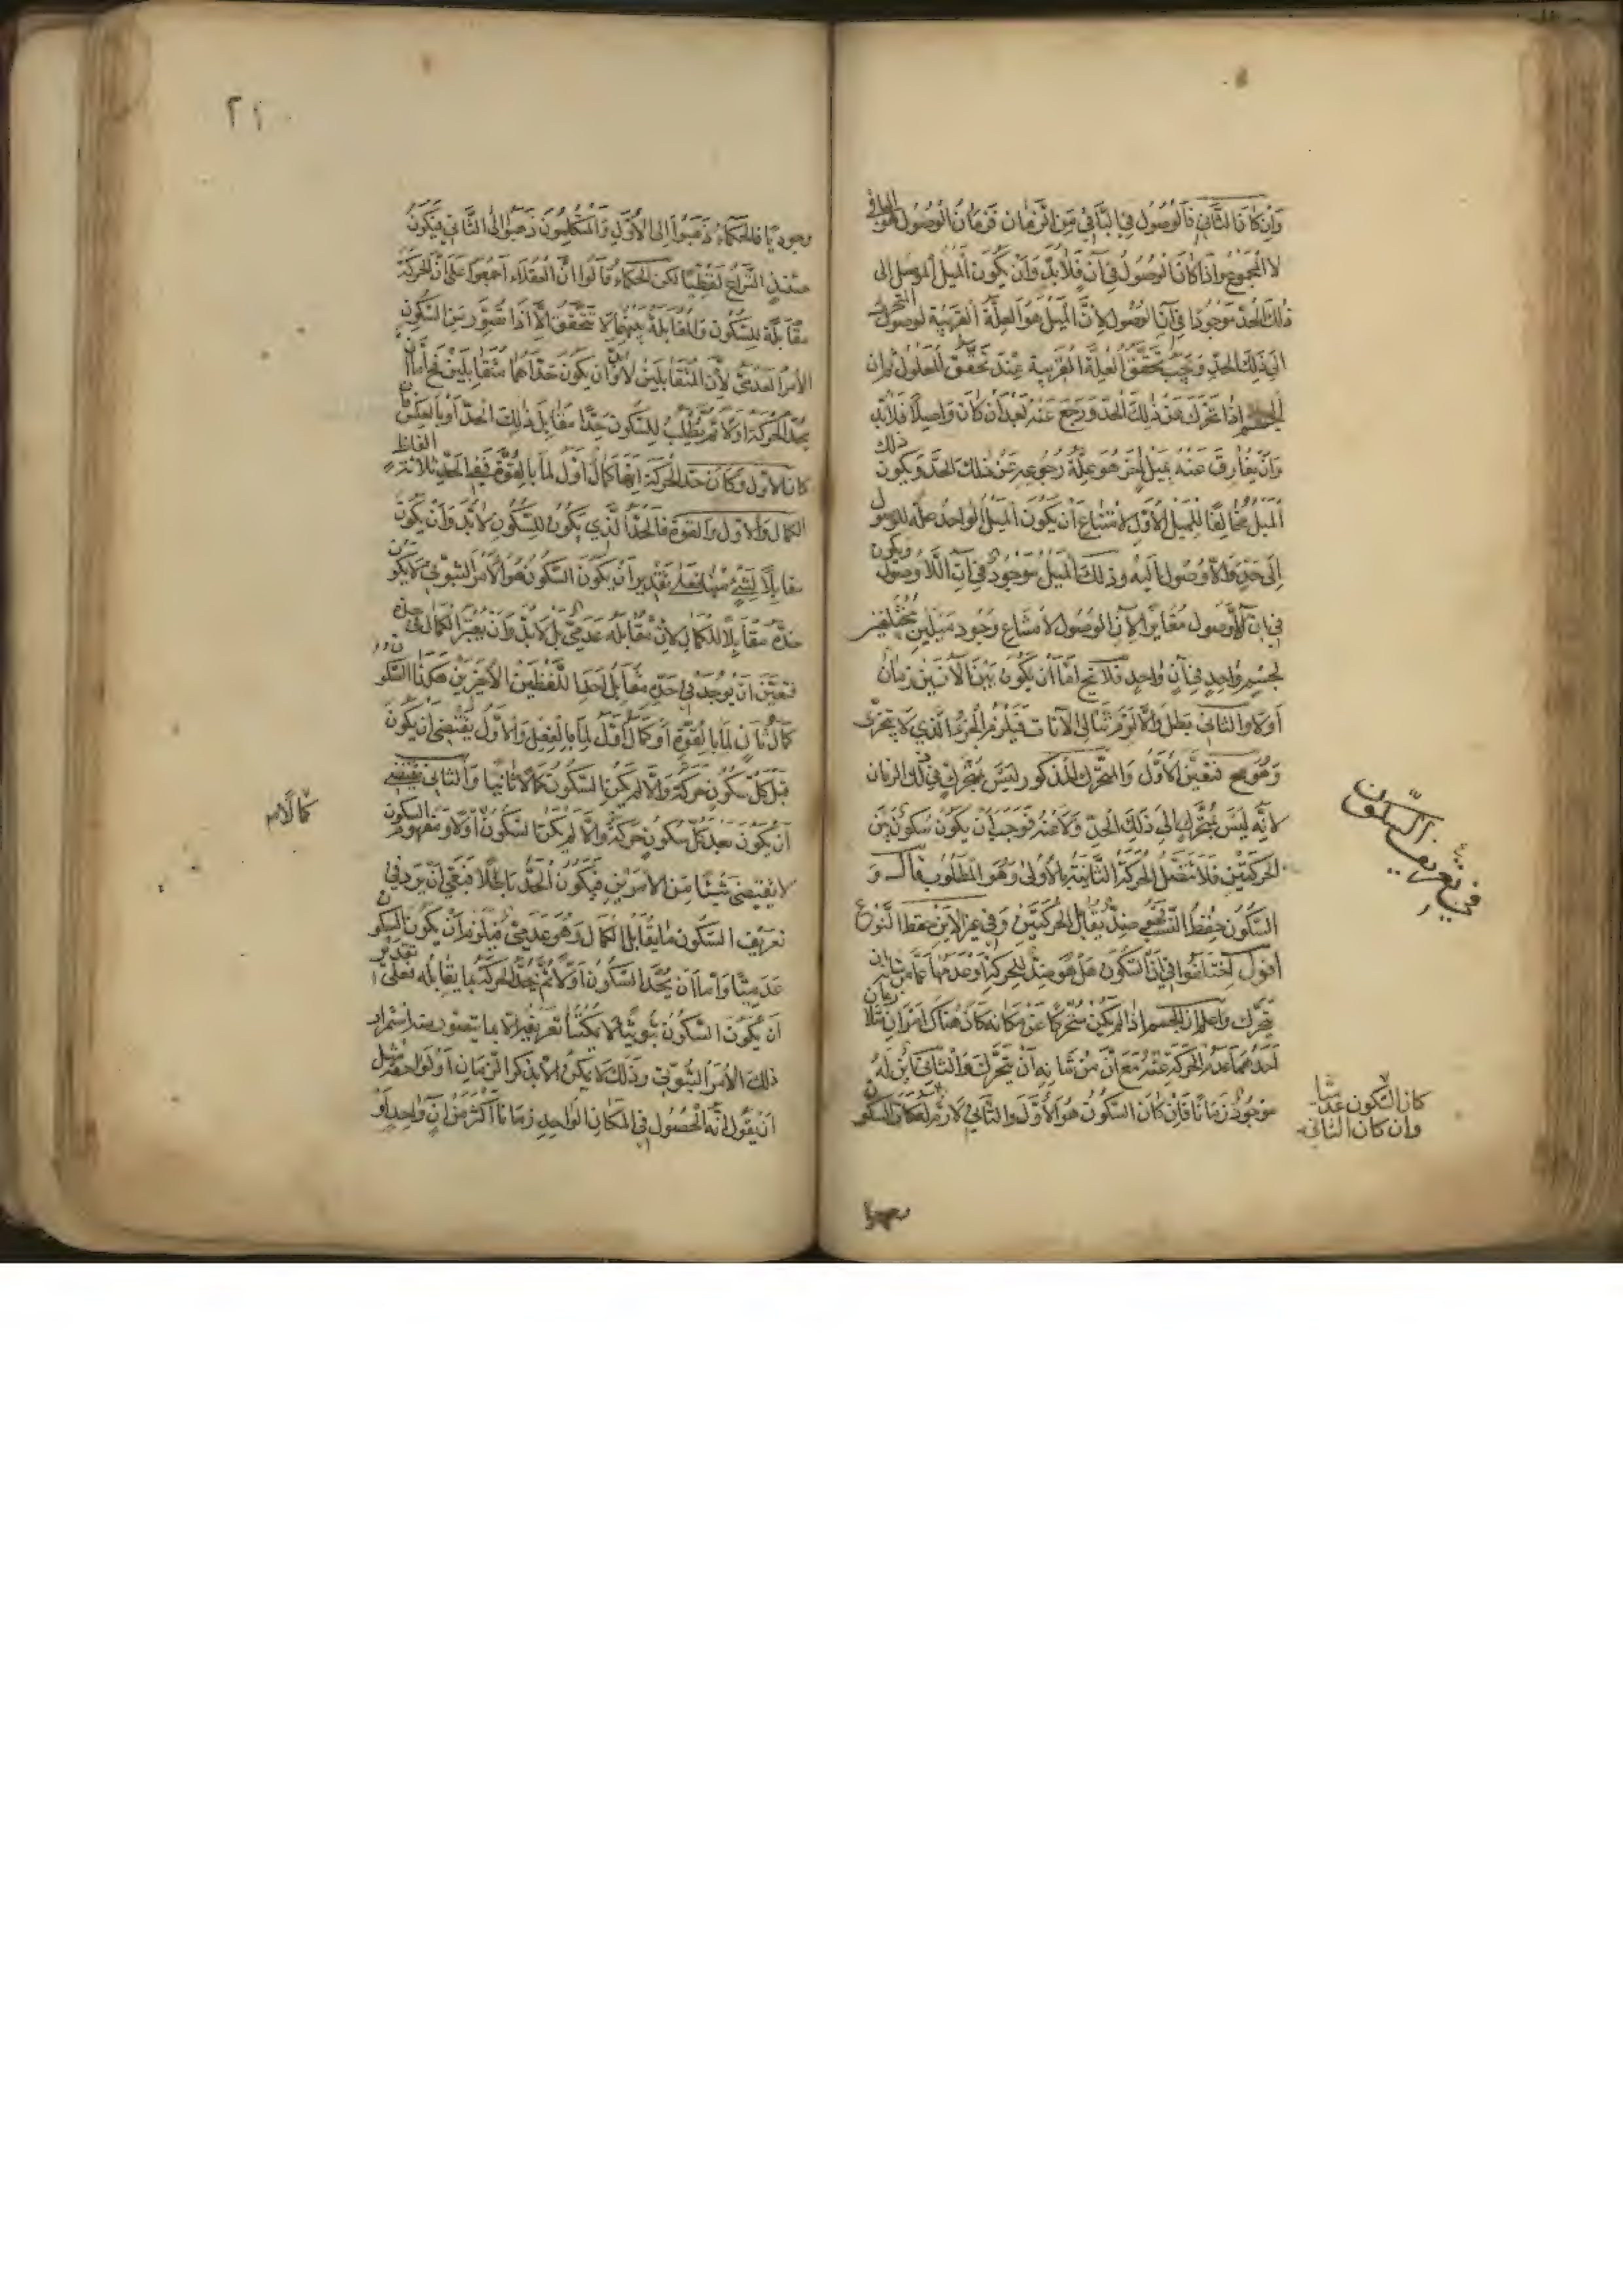 وان كان الثاني فالوصول في الباقي من الزمان فزمان الوصول هو الباقي
لا المجموع واذا كان الوصول في آن فلا بد وان يكون الميل الموصل الى
ذلك الحد موجودا في آن الوصول لان الميل هو العلة القريبة لوصول المتحرك
الى ذلك الحد ويجب تحقق العلة القريبة عند تحقق المعلول ثم ان
الجسم اذا تحرك عن ذلك الحد ورجع عنه بعد ان كان واصلا فلا بد
وان يفارق عنه بميل آخر هو علة رجوعه عن ذلك الحد ويكون ذلك
الميل مخالفا للميل الاول لامتناع ان يكون الميل الواحد علة للوصول
الى حد واللاوصول اليه وذلك الميل موجود في آن اللاوصول ويكون
في آن اللاوصول مغايرا لآن الوصول لامتناع وجود ميلين مختلفين
لجسم واحد في آن واحد فلا يخ اما ان يكون بين الآنين زمان
اولا والثاني بطل والا لزم تتالي الآنات فيلزم الجزء الذي لا يتجزى
وهو مح فتعين الاول والمتحرك المذكور ليس بمتحرك في ذلك الزمان
لانه ليس بمتحرك الى ذلك الحد ولا عنه فوجب ان يكون سكون بين
الحركتين فلا تتصل الحركة الثانية بالاولى وهو المطلوب قال و
السكون حفظ النسب فهو ضد يقابل الحركتين وفي غير الاين حفظ النوع
اقول اختلفوا في ان السكون هل هو ضد للحركة او عدمها عما من شانه ان
يتحرك واعلم ان الجسم اذا لم يكن متحركا عن مكانه كان هناك امران
احدهما عدم الحركة عنه مع ان من شانه ان يتحرك والثاني اين له
موجود زمانا فان كان السكون هو الاول والثاني لازم له كان السكون
في تعريف السكون
كان السكون عدميا
وان كان الثاني
٢١٠
وجوديا فالحكماء ذهبوا الى الاول والمتكلمون ذهبوا الى الثاني فيكون
حينئذ النزاع لفظيا لكن الحكماء قالوا ان العقلاء اجمعوا على ان الحركة
مقابلة للسكون والمقابلة بينهما لا تتحقق الا اذا تصور من السكون
الامر العدمي لان المتقابلين لا بد وان يكون حداهما متقابلين فح اما ان
يحد الحركة اولا ثم يطلب للسكون حدا مقابل ذلك الحد او بالعكس فان
كان الاول وكان حد الحركة انها كمال اول لما بالقوة ففي الحد ثلاثة الفاظ
الكمال والاول والقوة فالحد الذي يكون للسكون لا بد وان يكون
مقابلا لشئ منها فعلى تقدير ان يكون السكون هو الامر الثبوتي لا يكون
حده مقابلا للكمال لان مقابله عدمي بل لا بد وان يعتبر الكمال في حده
فتعين ان يوجد في حده مقابل احد اللفظين الاخيرين هكذا السكون
كمال ثان لما بالقوة او كمال اول لما بالفعل والاول يقتضي ان يكون
قبل كل سكون حركة والا لم يكن السكون كمالا ثانيا والثاني يقتضي
ان يكون بعد كل سكون حركة والا لم يكن السكون اولا ومفهوم السكون
لا يقتضي شيئا من الامرين فيكون الحد باطلا فبقي ان يرد في
تعريف السكون ما يقابل الكمال وهو عدمي فيلزم ان يكون السكون
عدميا واما ان يحد السكون اولا ثم يحد الحركة بما يقابله فعلى تقدير
ان يكون السكون ثبوتيا لا يمكننا تعريفه الا بما منه استمرار
ذلك الامر الثبوتي وذلك لا يمكن الا بذكر الزمان او لواحقه مثل
ان يقول انه الحصول في المكان الواحد زمانا اكثر من آن واحد او
كمالا